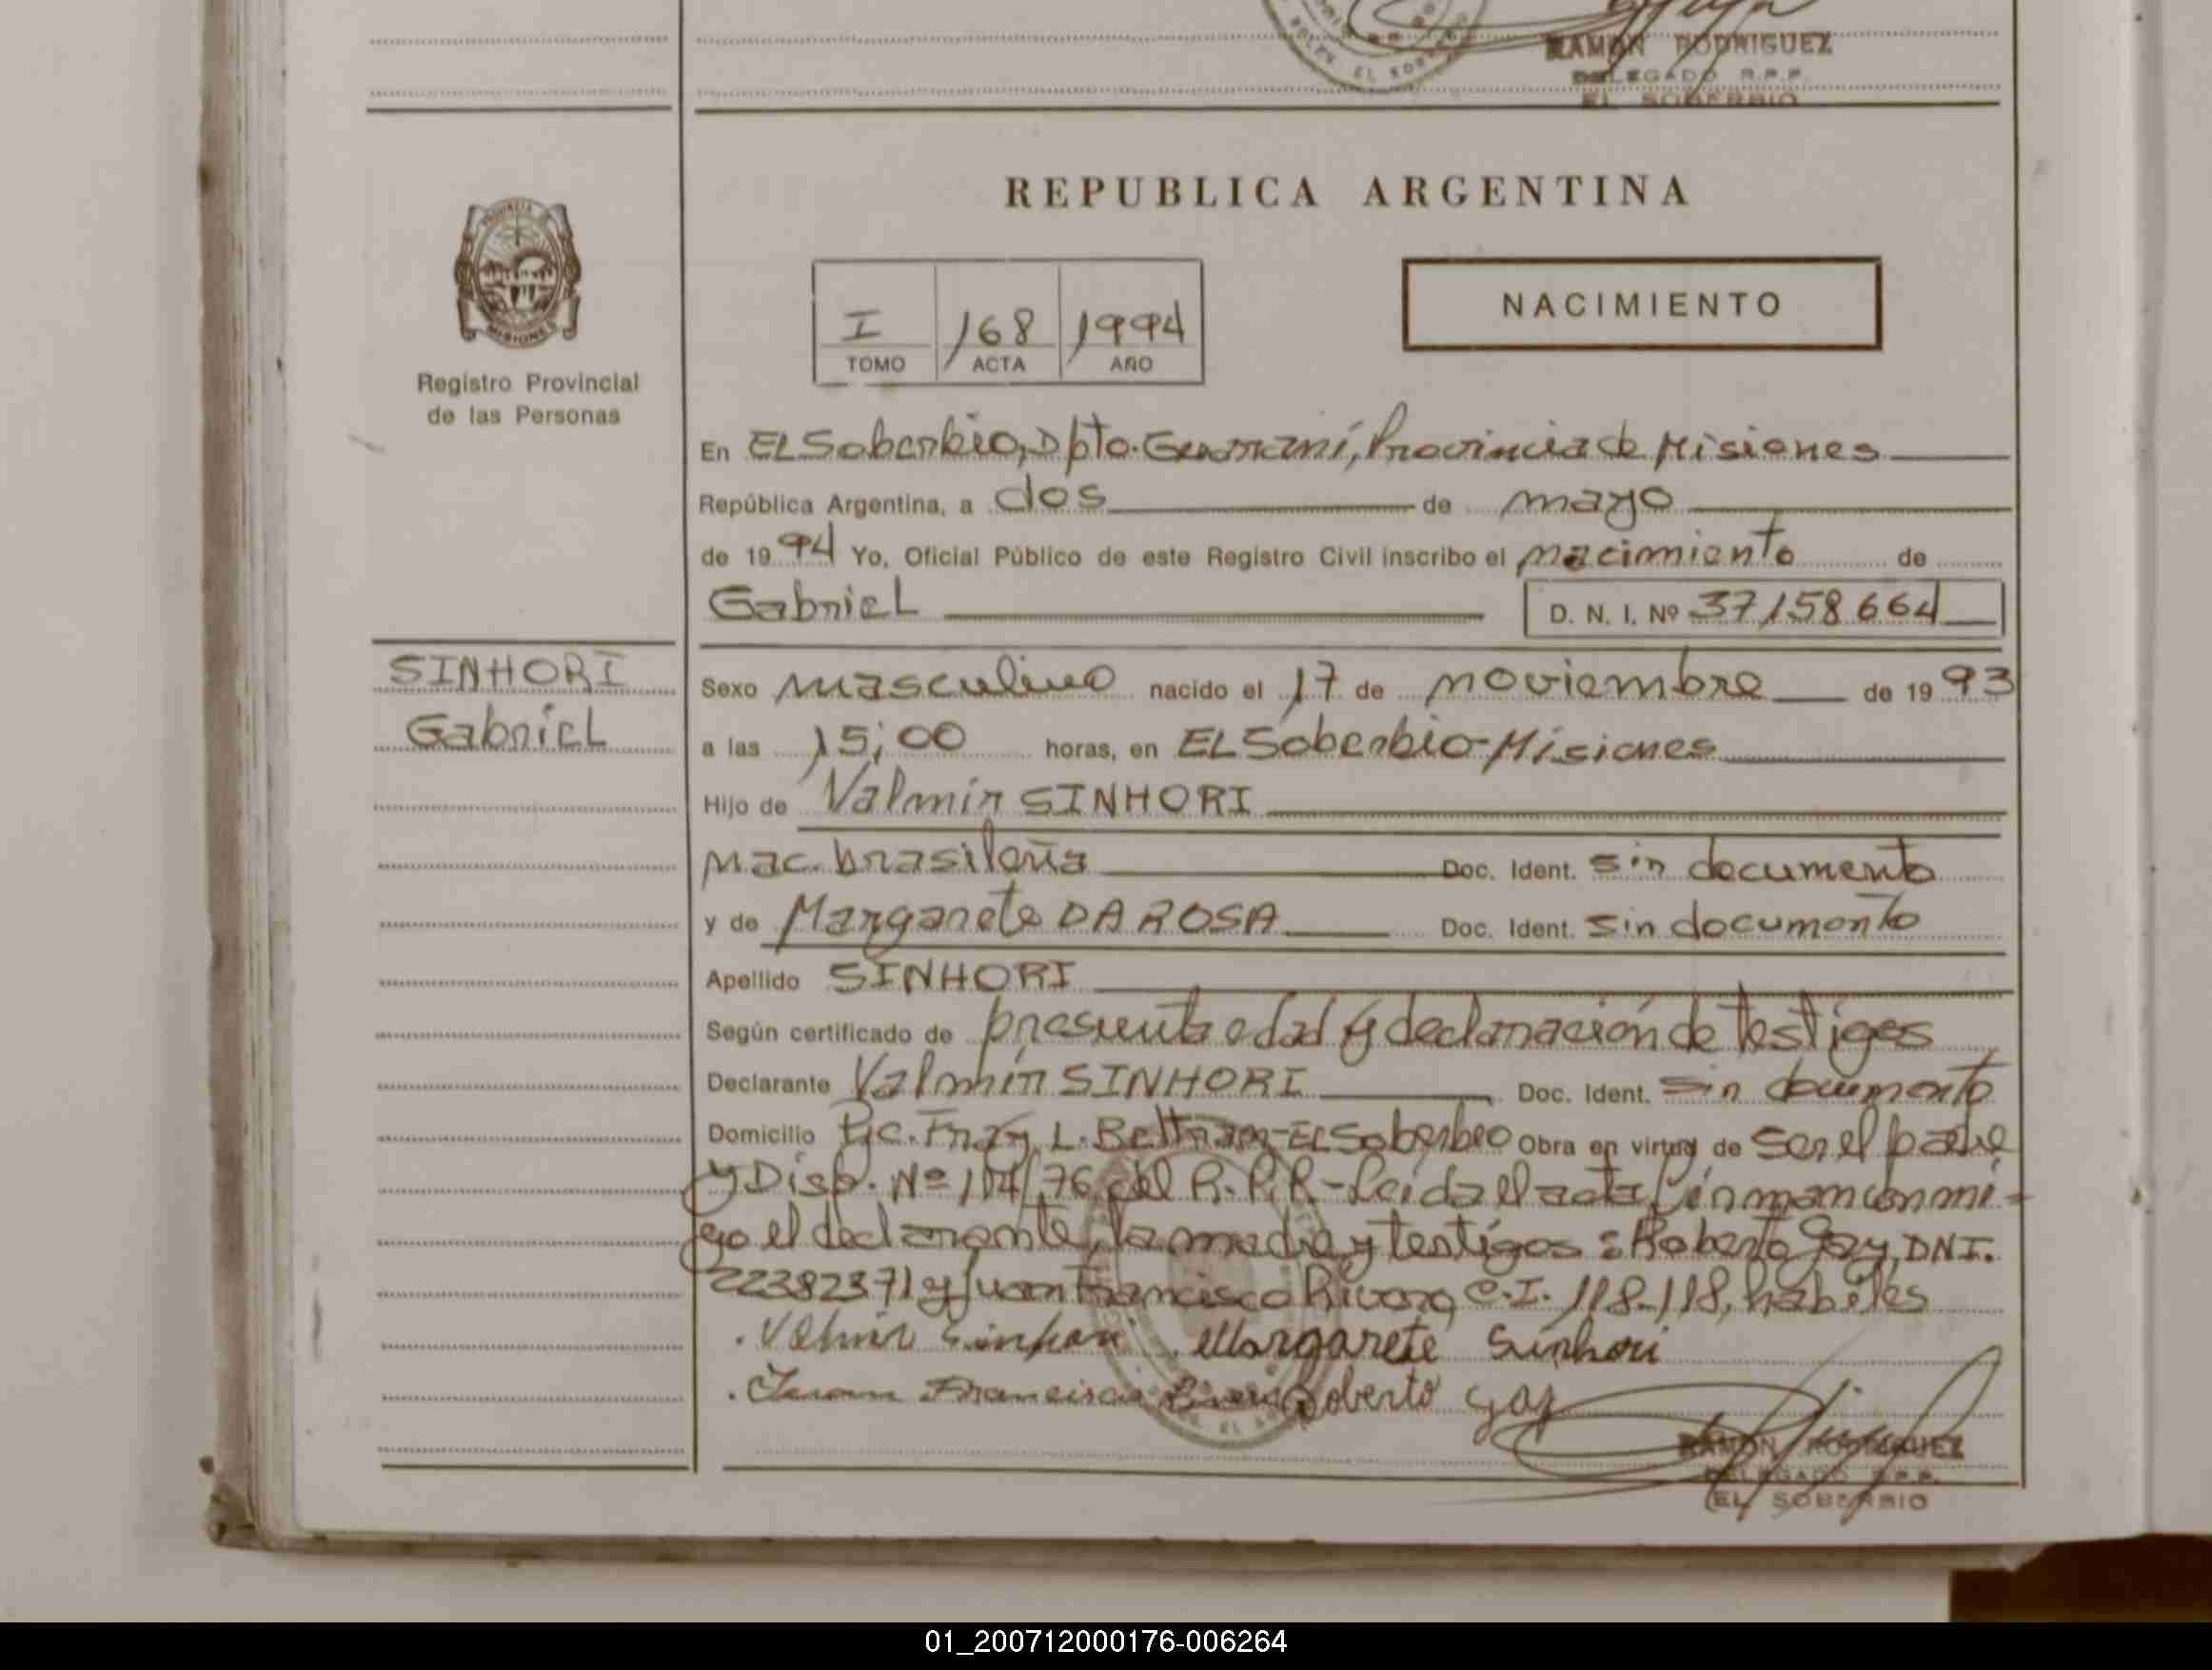 RAMON RODRIGUEZ
DELEGADO R.P.P.
EL SOBERBIO
REPUBLICA ARGENTINA
PROVINCIA DE
MISIONES
Registro Provincial
de las Personas
I 168 1994
TOMO ACTA AÑO
NACIMIENTO
En El Soberbio, Dpto. Guaraní, Provincia de Misiones
República Argentina, a dos de mayo
de 1994 Yo, Oficial Público de este Registro Civil inscribo el nacimiento de
Gabriel D. N. I. Nº 37158664
SINHORI
Gabriel
Sexo masculino nacido el 17 de noviembre de 1993
a las 15;00 horas, en El Soberbio-Misiones
Hijo de Valmir SINHORI
nac. brasileña Doc. Ident. sin documento
y de Margarete DA ROSA Doc. Ident. sin documento
Apellido SINHORI
Según certificado de presunta edad y declaración de testigos
Declarante Valmir SINHORI Doc. Ident. sin documento
Domicilio Pje. Fray L. Beltran-El Soberbio Obra en virtud de ser el padre
y Disp. Nº 104/76 del R.P.P.-Leída el acta firman conmi-
go el declarante, la madre y testigos: Roberto Gay, DNI.
22382371 y Juan Francisco Rivero, C.I. 118.118, hábiles
Valmir Sinhori Margarete Sinhori
Juan Francisco Roberto Gay
RAMON RODRIGUEZ
DELEGADO R.P.P.
EL SOBERBIO
01_200712000176-006264